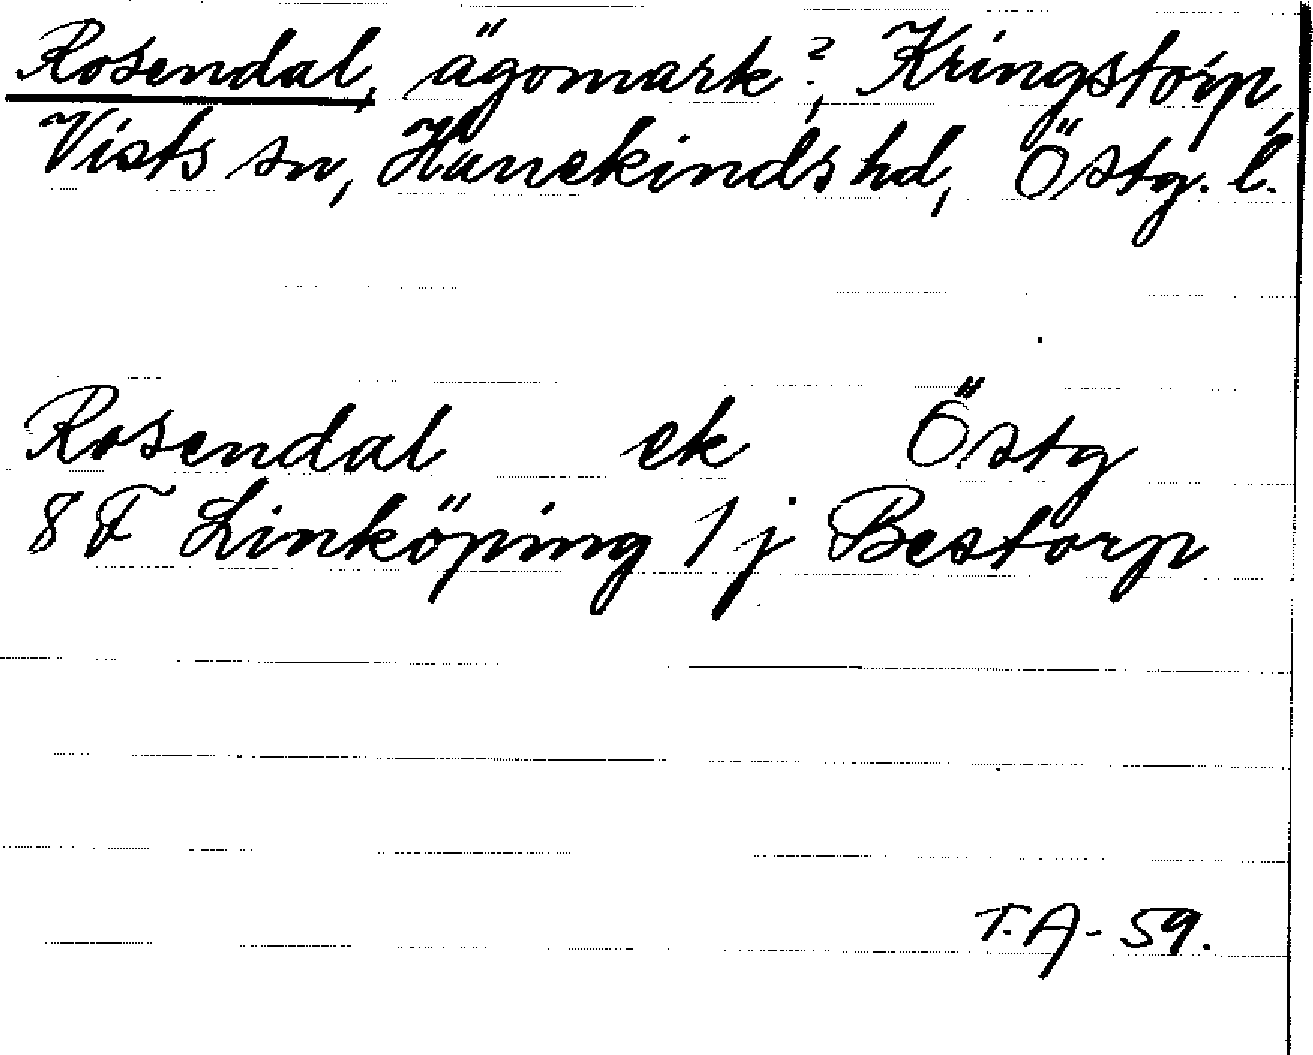 Rosendal, ägomark?, Kringstorp,
Vists sn, Hanekinds hd, Östg. l.
Rosendal ek Östg
8 F Linköping 1 j Bestorp
T.A- 59.